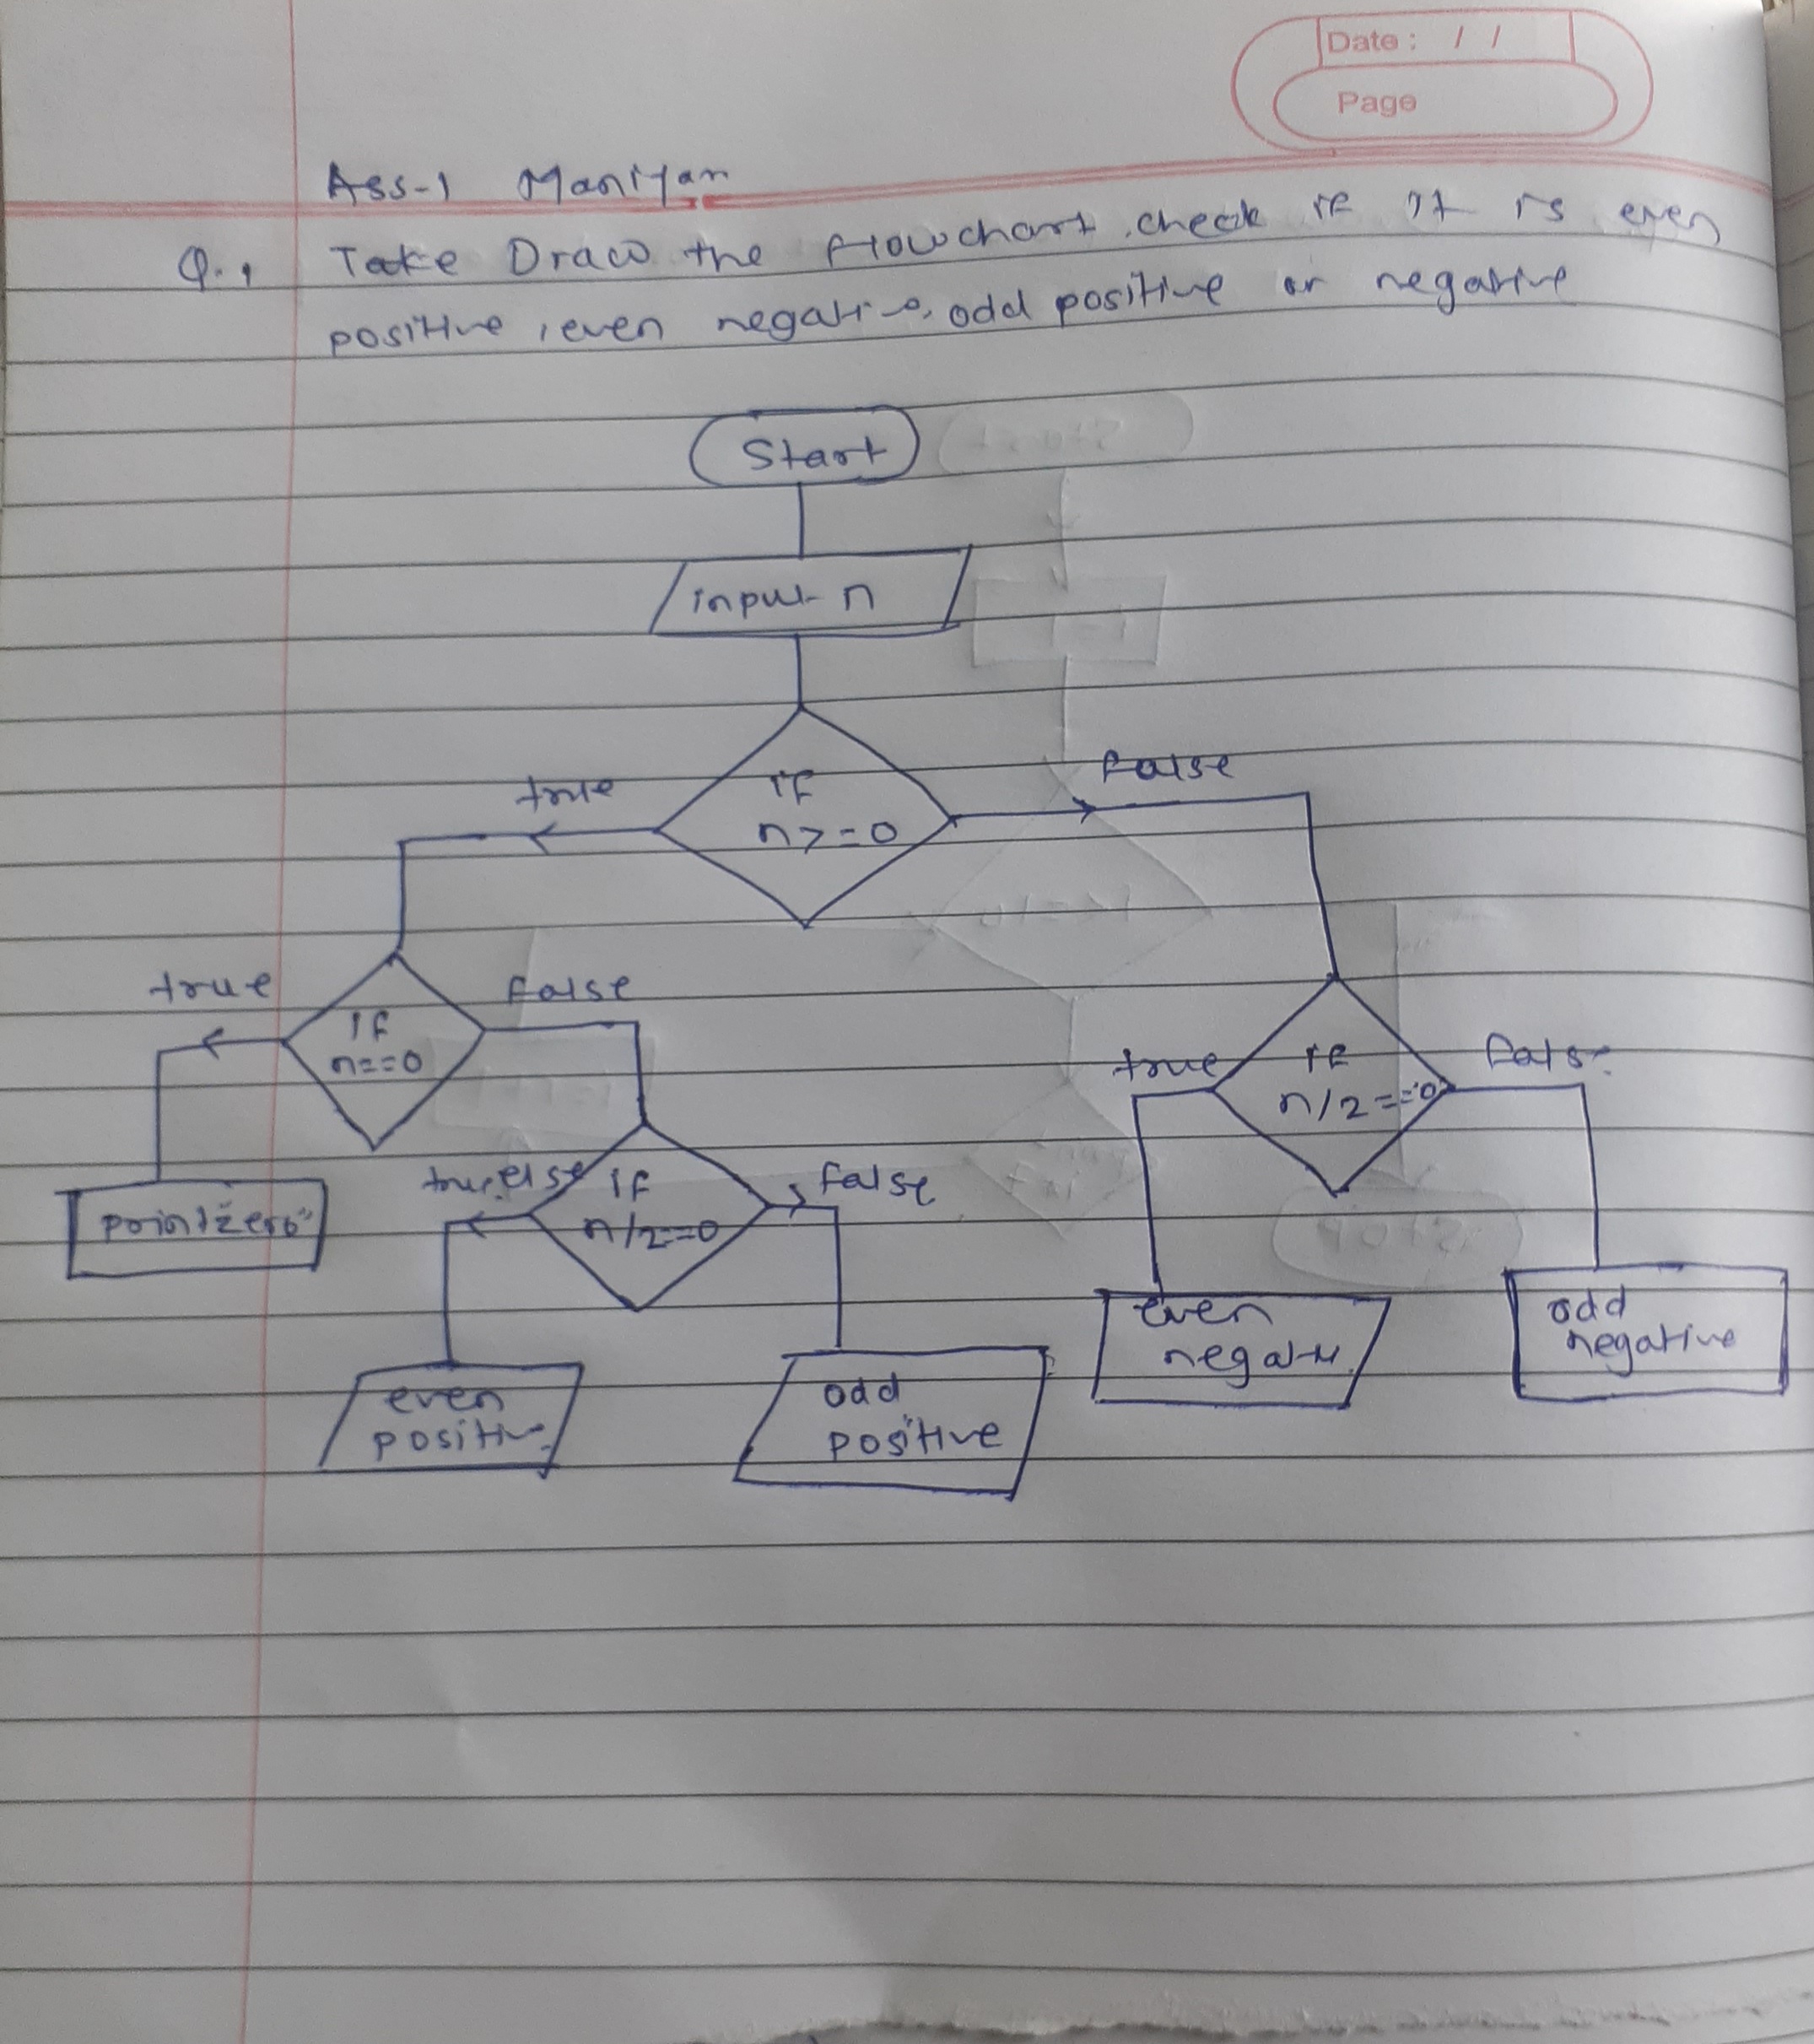 Date : / /
Page
Ass-1 Maniyar
Q.1 Take Draw the flowchart, check if it is even
positive, even negative, odd positive or negative
Start
input n
if
n>=0
true
false
if
n==0
true
false
print"zero"
if
n/2==0
false
even
positive
odd
positive
if
n/2==0
true
false
even
negative
odd
negative